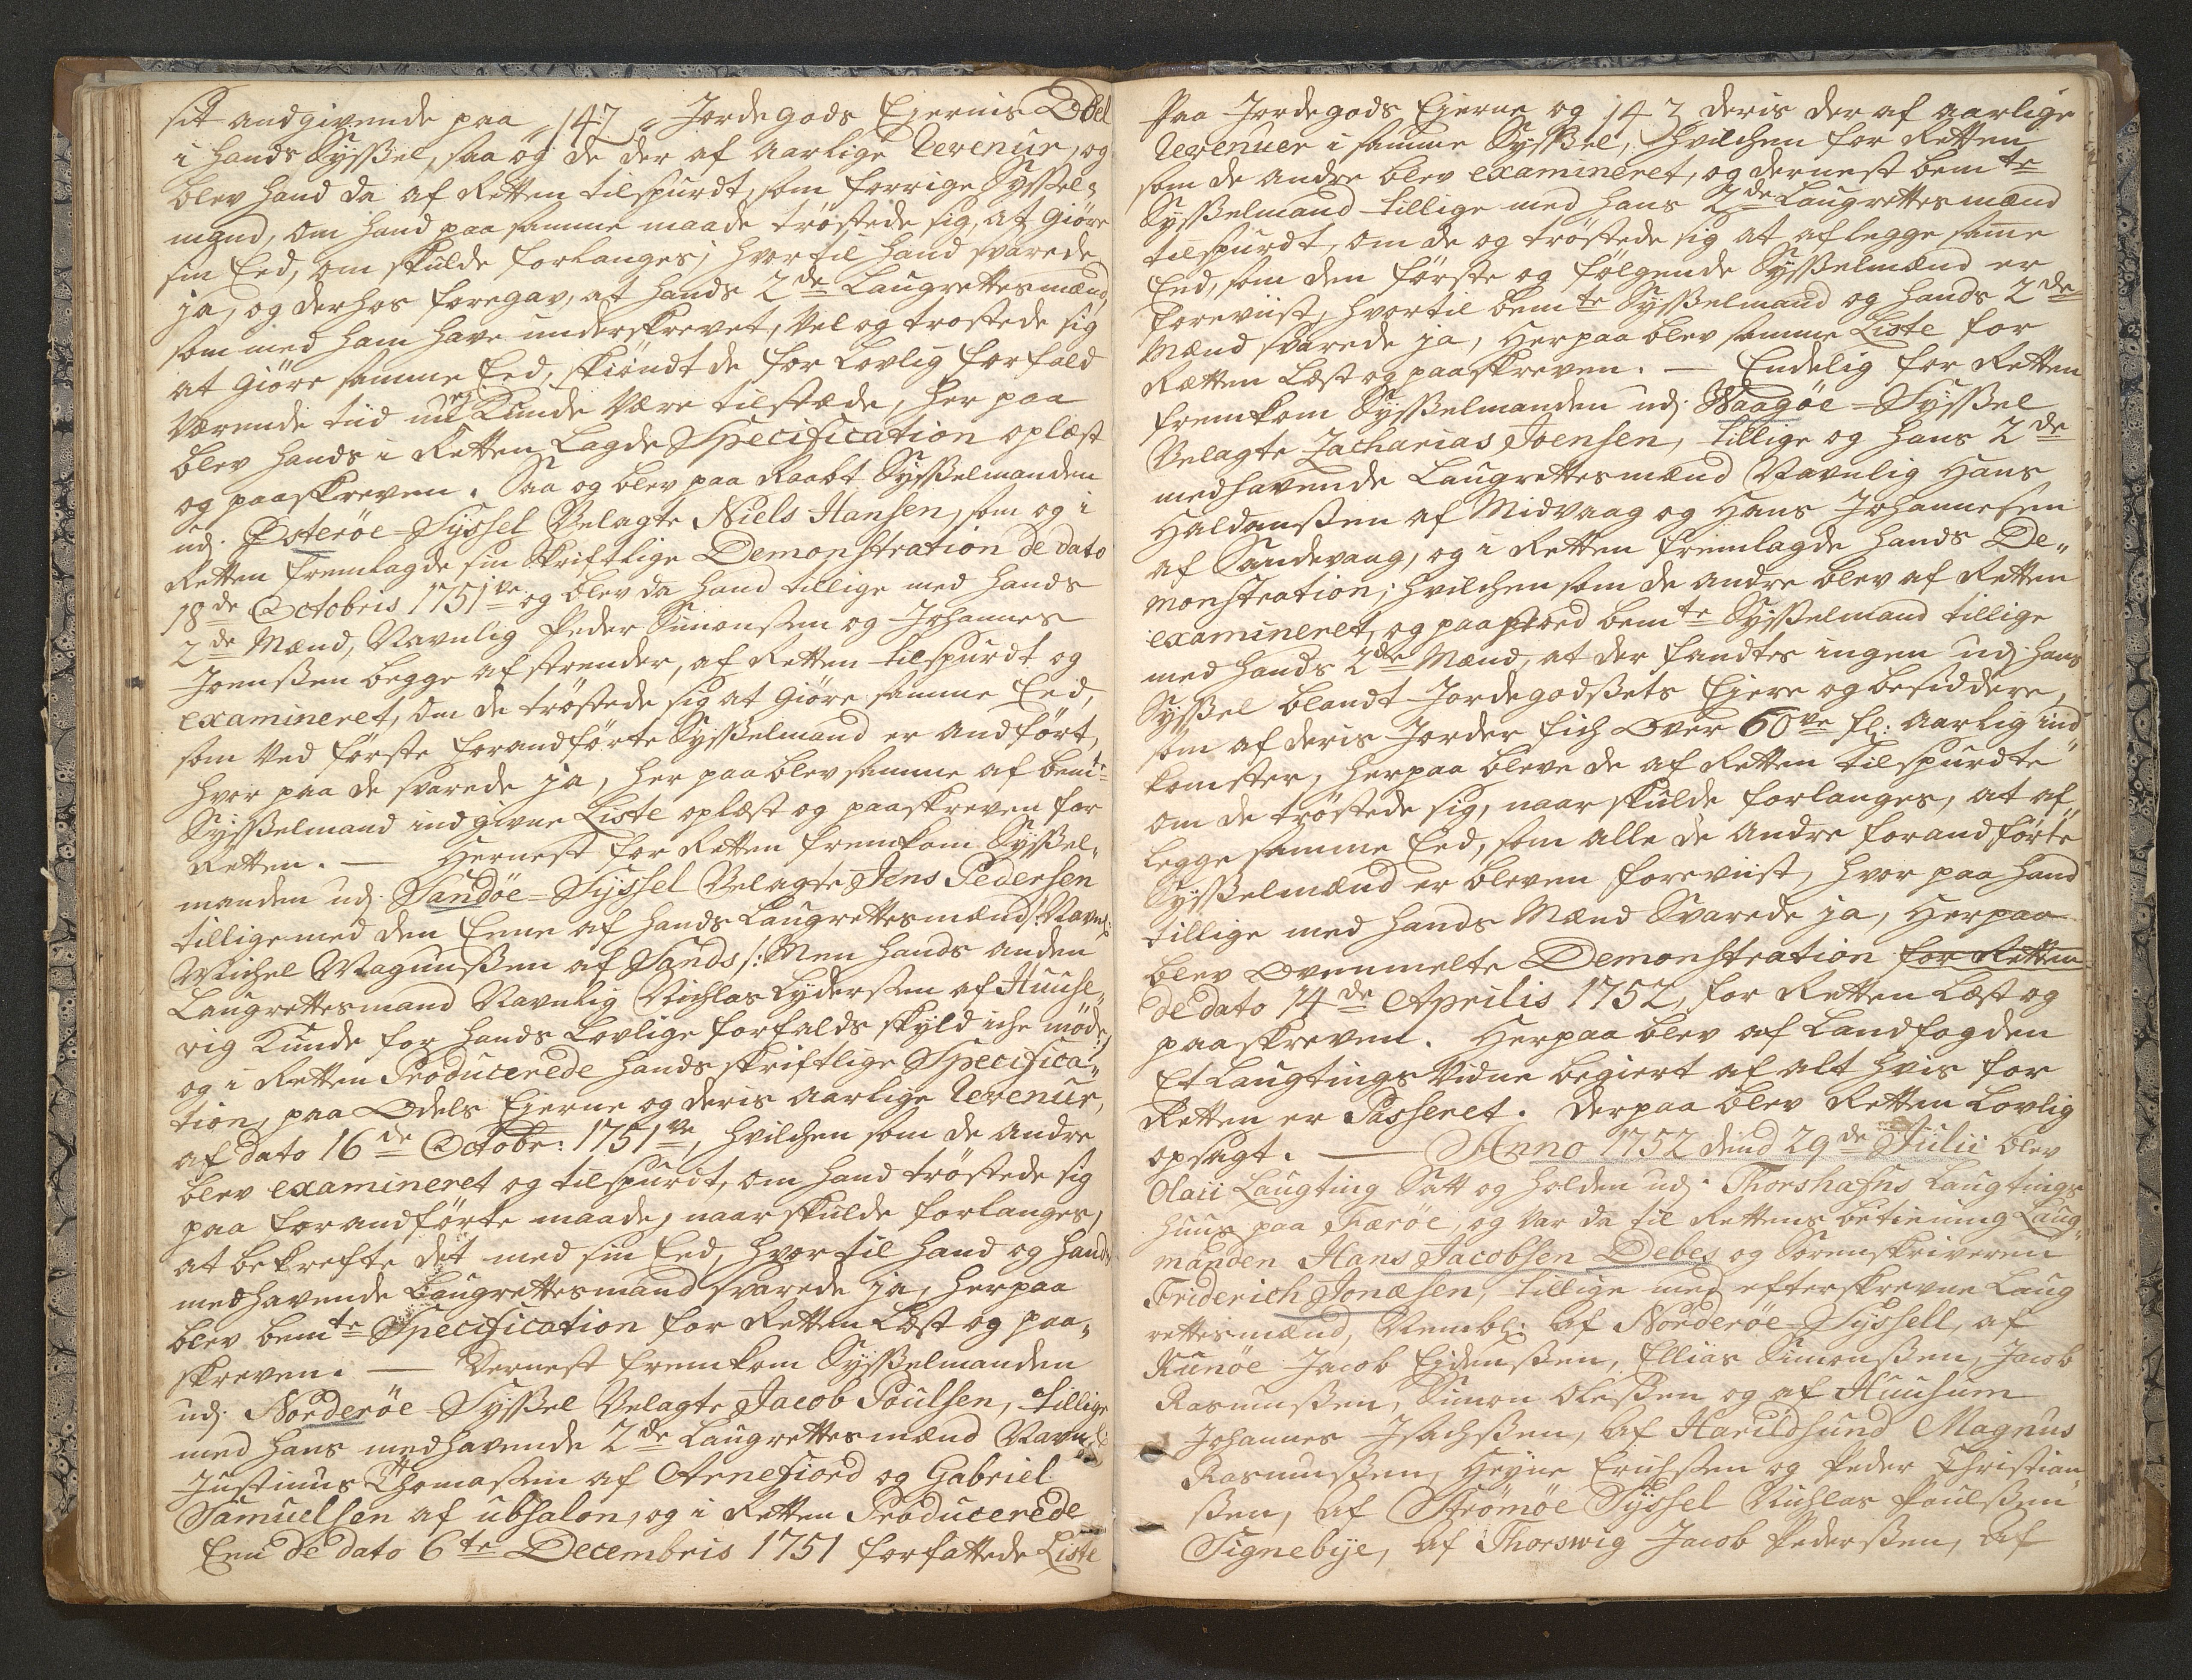 sit andgivende paa 147 Jordegods Ejernis Odel
i hands Sysßel, saa og de der af aarlige Revenur, og
blev hand da af Retten tilspurdt, som forrige Syssel-
mand, om hand paa samme maade tröstede sig, at giöre
sin Eed, om skulde forlanges, hvortil hand svarede
ja, og derhos foregav, at hands 2de Laugrettesmænd,
som med ham have underskrevet, vel og tröstede sig
at giöre samme Eed, skiöndt de for Lovlig forfald
værende tiid ej kunde være tilstæde, her paa
blev hands i Retten Lagde Specification oplæst
og paaskreven. Saa og blev paa Raabt Sysßelmanden
udj Österöe-Syssel Velagte Niels Hansen, som og i
Retten fremlagde sin skriftlige Demonstration de dato
18de Octobris 1751ve og blev da hand tillige med hands
2de Mænd, Navnlig Peder Simonsßen og Johannes
Joensßen begge af strender, af Retten tilspurdt og
examineret, om de tröstede sig at giöre samme Eed,
som ved förste forandförte Sysßelmand er andfört,
hvor paa de svarede ja, her paa blev samme af bemte
Sysßelmand indgivne Liste oplæst og paaskreven for
Retten. — Hernest for Retten fremkom Sysßel-
manden udj Sandöe-Syssel Velagte Jens Pedersen
tillige med den Eene af hands Laugrettesmænd /: Navnl:
Michel Magnusßen af Sands /: Men hands anden
Laugrettesmand Navnlig Nichlas Lydersßen af Huuse-
vig kunde for hands Lovlige forfalds skyld iche möde:/
og i Retten Producerede hands skriftlige Specifica-
tion, paa Odels Ejerne og deris aarlige Revenur,
af dato 16de Octobr: 1751ve, hvilchen som de andre
blev examineret og tilspurdt, om hand tröstede sig
paa forandförte maade, naar skulde forlanges,
at bekrefte det med sin Eed, hvortil hand og hands
medhavende Laugrettesmand svarede ja, herpaa
blev bemte Specification for Retten Læst og paa-
skreven. — Dernest fremkom Sysßelmanden
udj Norderöe-Sysßel Velagte Jacob Poulsen, tillige
med hans medhavende 2de Laugrettesmænd Navnl:
Justinus Thomasßen af Arnefiord og Gabriel
Samuelsen af ubsalon, og i Retten Producerede
Een de dato 6te Decembris 1751 forfattede Liste
Paa Jordegods Ejerne og 143 deris der af aarlige
Revenuer i samme Sysßel, hvilchen for Retten
som de andre blev examineret, og dernest bemte
Sysßelmand tillige med hans 2de Laugrettesmænd
tilspurdt, om de og tröstede sig at aflegge same
Eed, som den förste og fölgende Sysßelmænd er
foreviist, hvortil bemte Sysßelmand og hands 2de
Mænd svarede ja, Herpaa blev samme Liste for
Rætten Læst og paaskreven. — Endelig for Retten
fremkom Sysßelmanden udj Waagöe-Sysßel
Velagte Zacharias Joensen, tillige og hans 2de
medhavende Laugrettesmænd Navnlig Hans
Haldansßen af Midvaag og Hans Johannesen
af Sandevaag, og i Retten fremlagde hands De-
monstration; hvilchen som de andre blev af Retten
examineret, og paastoed bemte Sysßelmand tillige
med hands 2de Mænd, at der fandtes ingen udj hans
Sysßel blandt Jordegodsßets Ejere og besiddere,
som af deris Jorder fich over 60ve fl: aarlig ind-
komster, herpaa bleve de af Retten tilspurdte
om de tröstede sig, naar skulde forlanges, at af-
legge samme Eed, som alle de andre forandförte
Sysßelmænd er bleven foreviist, hvor paa hand
tillige med hands Mænd svarede ja, Herpaa
blev ovenmelte Demonstration for Retten
de dato 14de Aprilis 1752, for Retten Læst og
paaskreven. Herpaa blev af Landfogden
Et Laugtings vidne begiert af alt hvis for
Retten er Passeret. Derpaa blev Retten Lovlig
opsagt. — Anno 1752 dend 29de Julii blev
Olaii Laugting Satt og holden udj Thorshafns Laugtings
huus paa Færöe, og var da til Rettens betiening Laug-
manden Hans Jacobsen Debes og Sorenskriveren
Friderich Jonæsen, tillige med efterskrevne Laug
rettesmænd, Nembl: af Norderöe-Syssell, af
Kunöe Jacob Eidensßen, Ellias Simonsßen, Jacob
Rasmusßen, Simon Olesßen og af Huusum
Johannes Isachsßen, af Harildsund Magnus
Rasmusßen, Heyne Erichsßen og Peder Christian
sßen, af Strömöe Syssel Nichlas Paulsßen
Signebye, af Thorswig Jacob Pedersßen, af